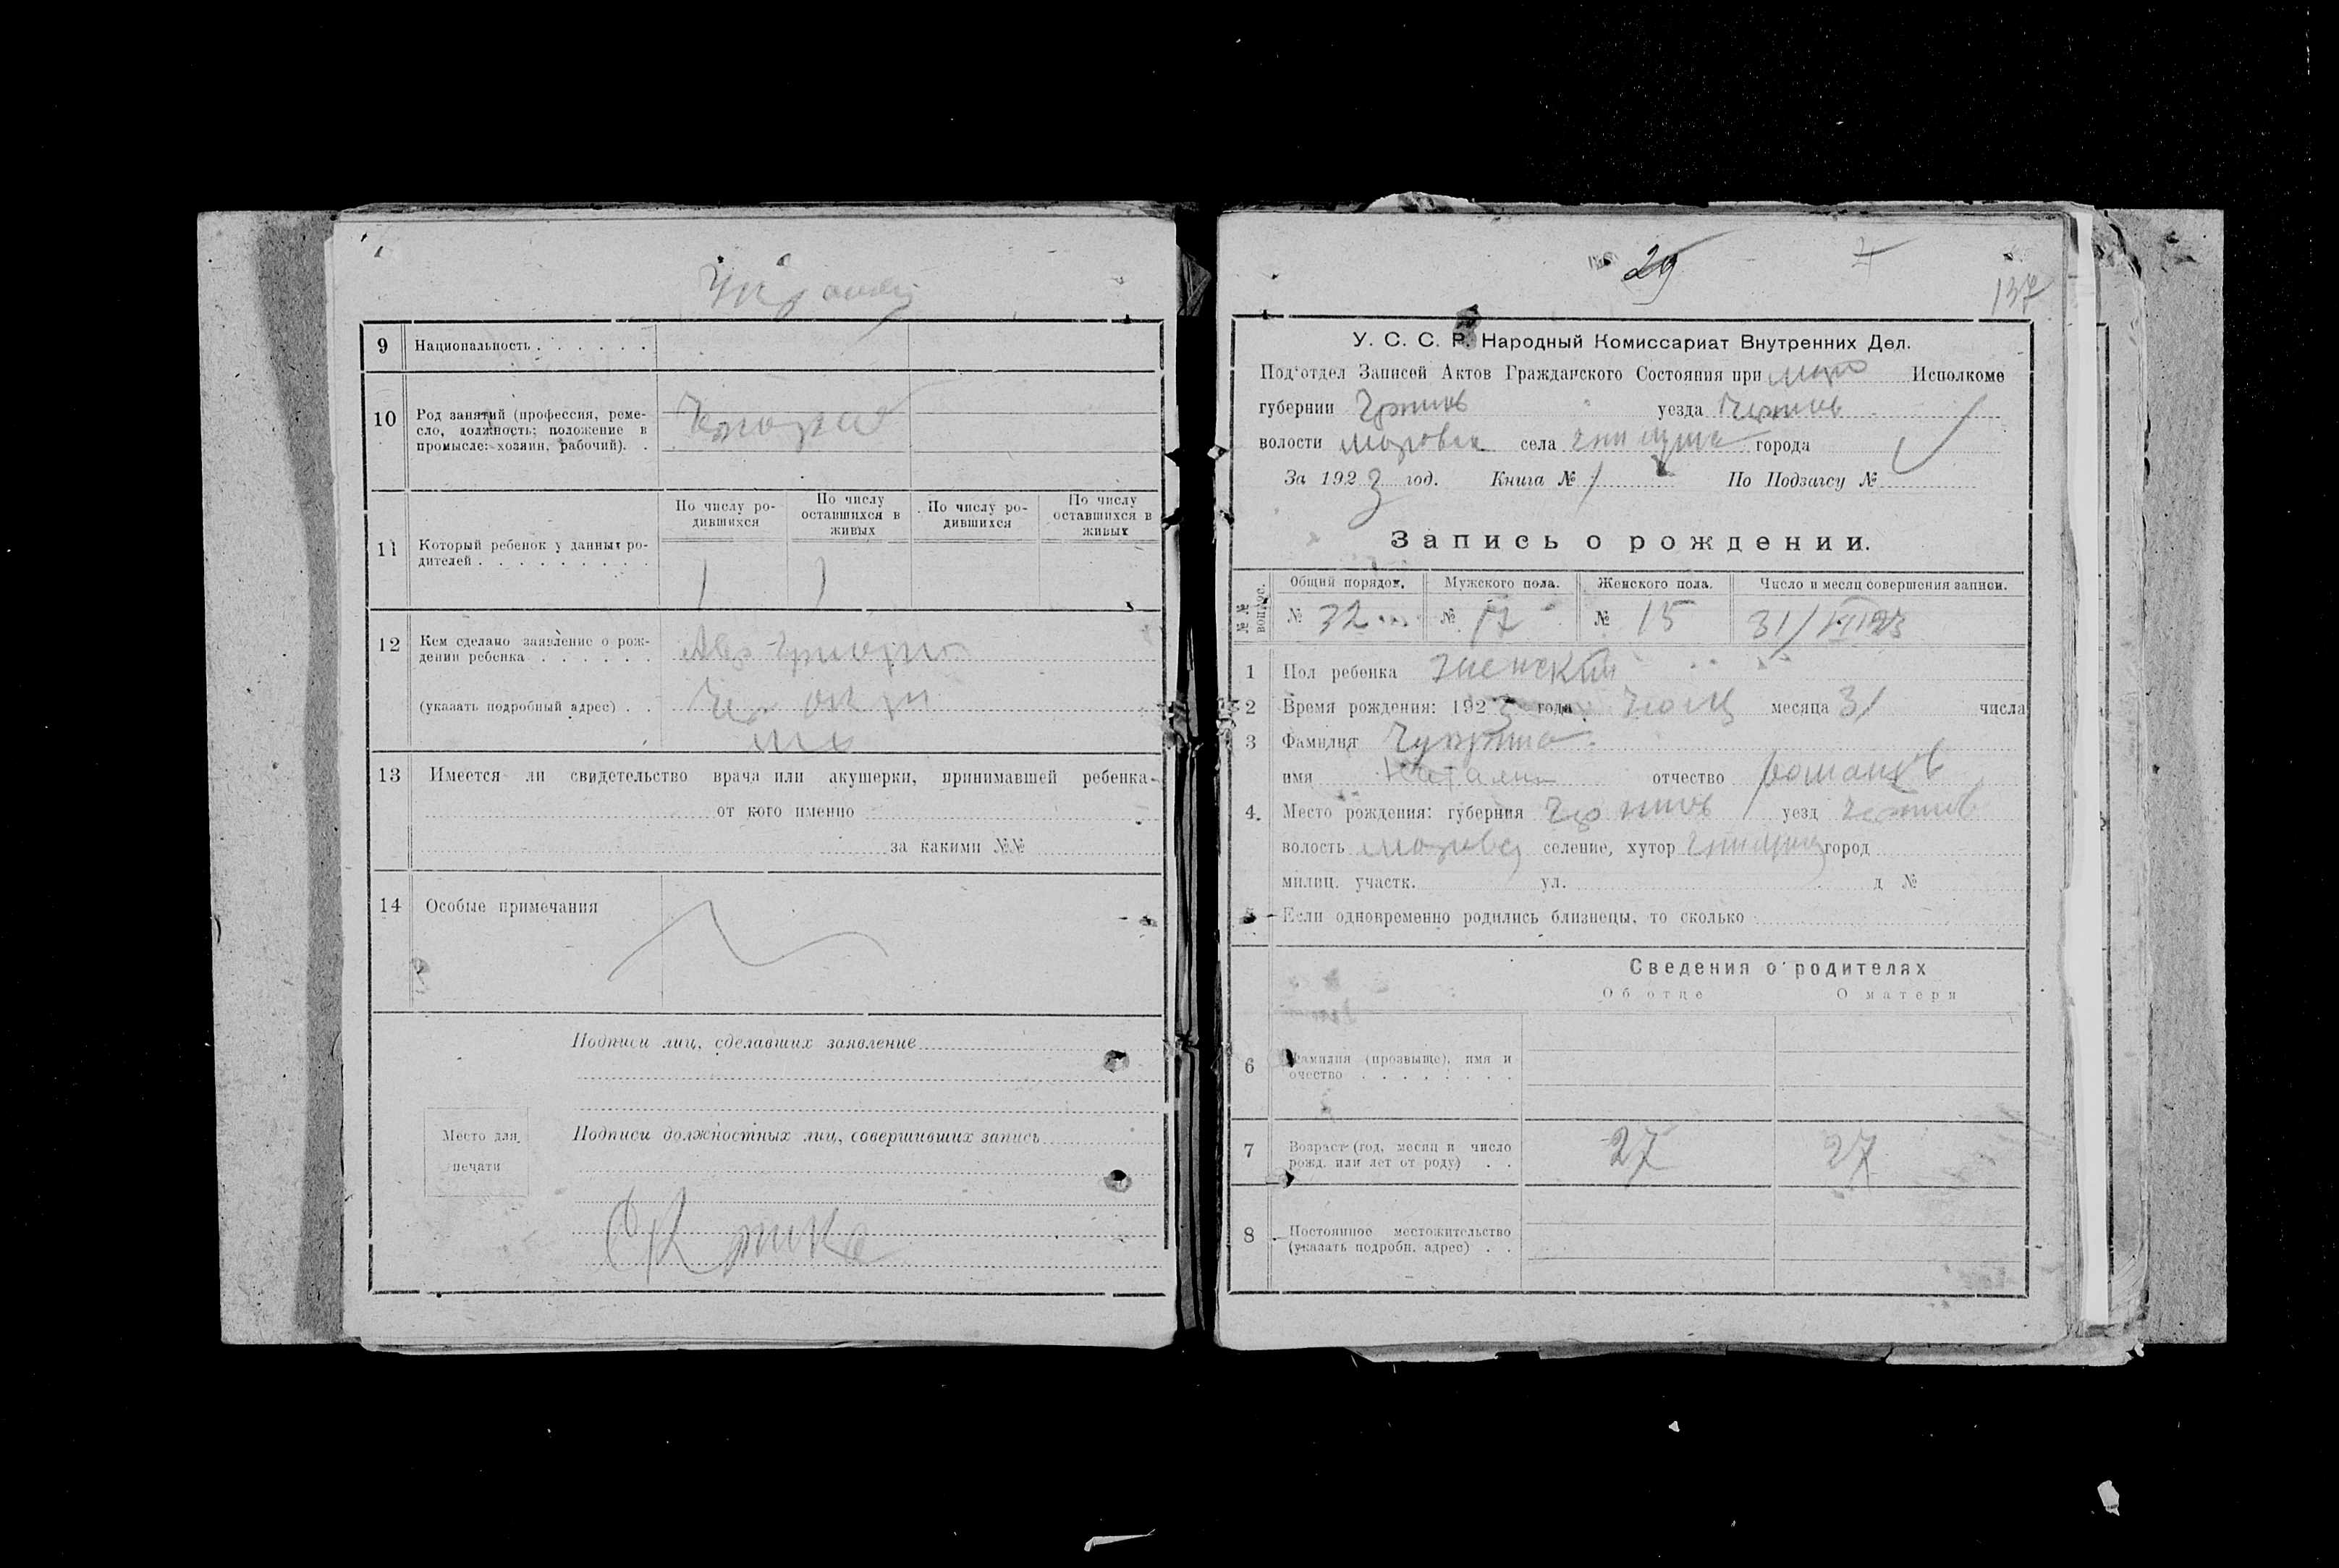 9 Национальность . . . . . .
10 Род занятий (профессия, реме-
сло, должность; положение в
промысле: хозяин, рабочий). .
11 Который ребенок у данных ро-
дителей . . . . . . . . .
По числу ро-
дившихся
По числу
оставшихся в
живых
По числу ро-
дившихся
По числу
оставшихся в
живых
1 1
12 Кем сделано заявление о рож-
дении ребенка . . . . . .
(указать подробный адрес) . .
13 Имеется ли свидетельство врача или акушерки, принимавшей ребенка-
от кого именно
за какими №№
14 Особые примечания
Подписи лиц, сделавших заявление
Подписи должностных лиц, совершивших запись
Место для
печати
29
137
У. С. С. Р. Народный Комиссариат Внутренних Дел.
Под'отдел Записей Актов Гражданского Состояния при Исполкоме
губернии Чернигов уезда Чернигов
волости села города
За 1923 год. Книга № 1 По Подзагсу №
Запись о рождении.
№№ вопрос.
Общий порядок. Мужского пола. Женского пола. Число и месяц совершения записи.
№ 32 № 17 № 15 31/VII 23
1 Пол ребенка женский
2 Время рождения: 1923 года месяца 31 числа
3 Фамилия Чуприна
имя Наталия отчество Романов
4. Место рождения: губерния Чернигов уезд Чернигов
волость селение, хутор город
милиц. участк. ул. д №
5 Если одновременно родились близнецы, то сколько
Сведения о родителях
Об отце О матери
6 Фамилия (прозвыще), имя и
очество . . . . . . . .
7 Возраст (год, месяц и число
рожд. или лет от роду) . .
27 27
8 Постоянное местожительство
(указать подробн. адрес) . .